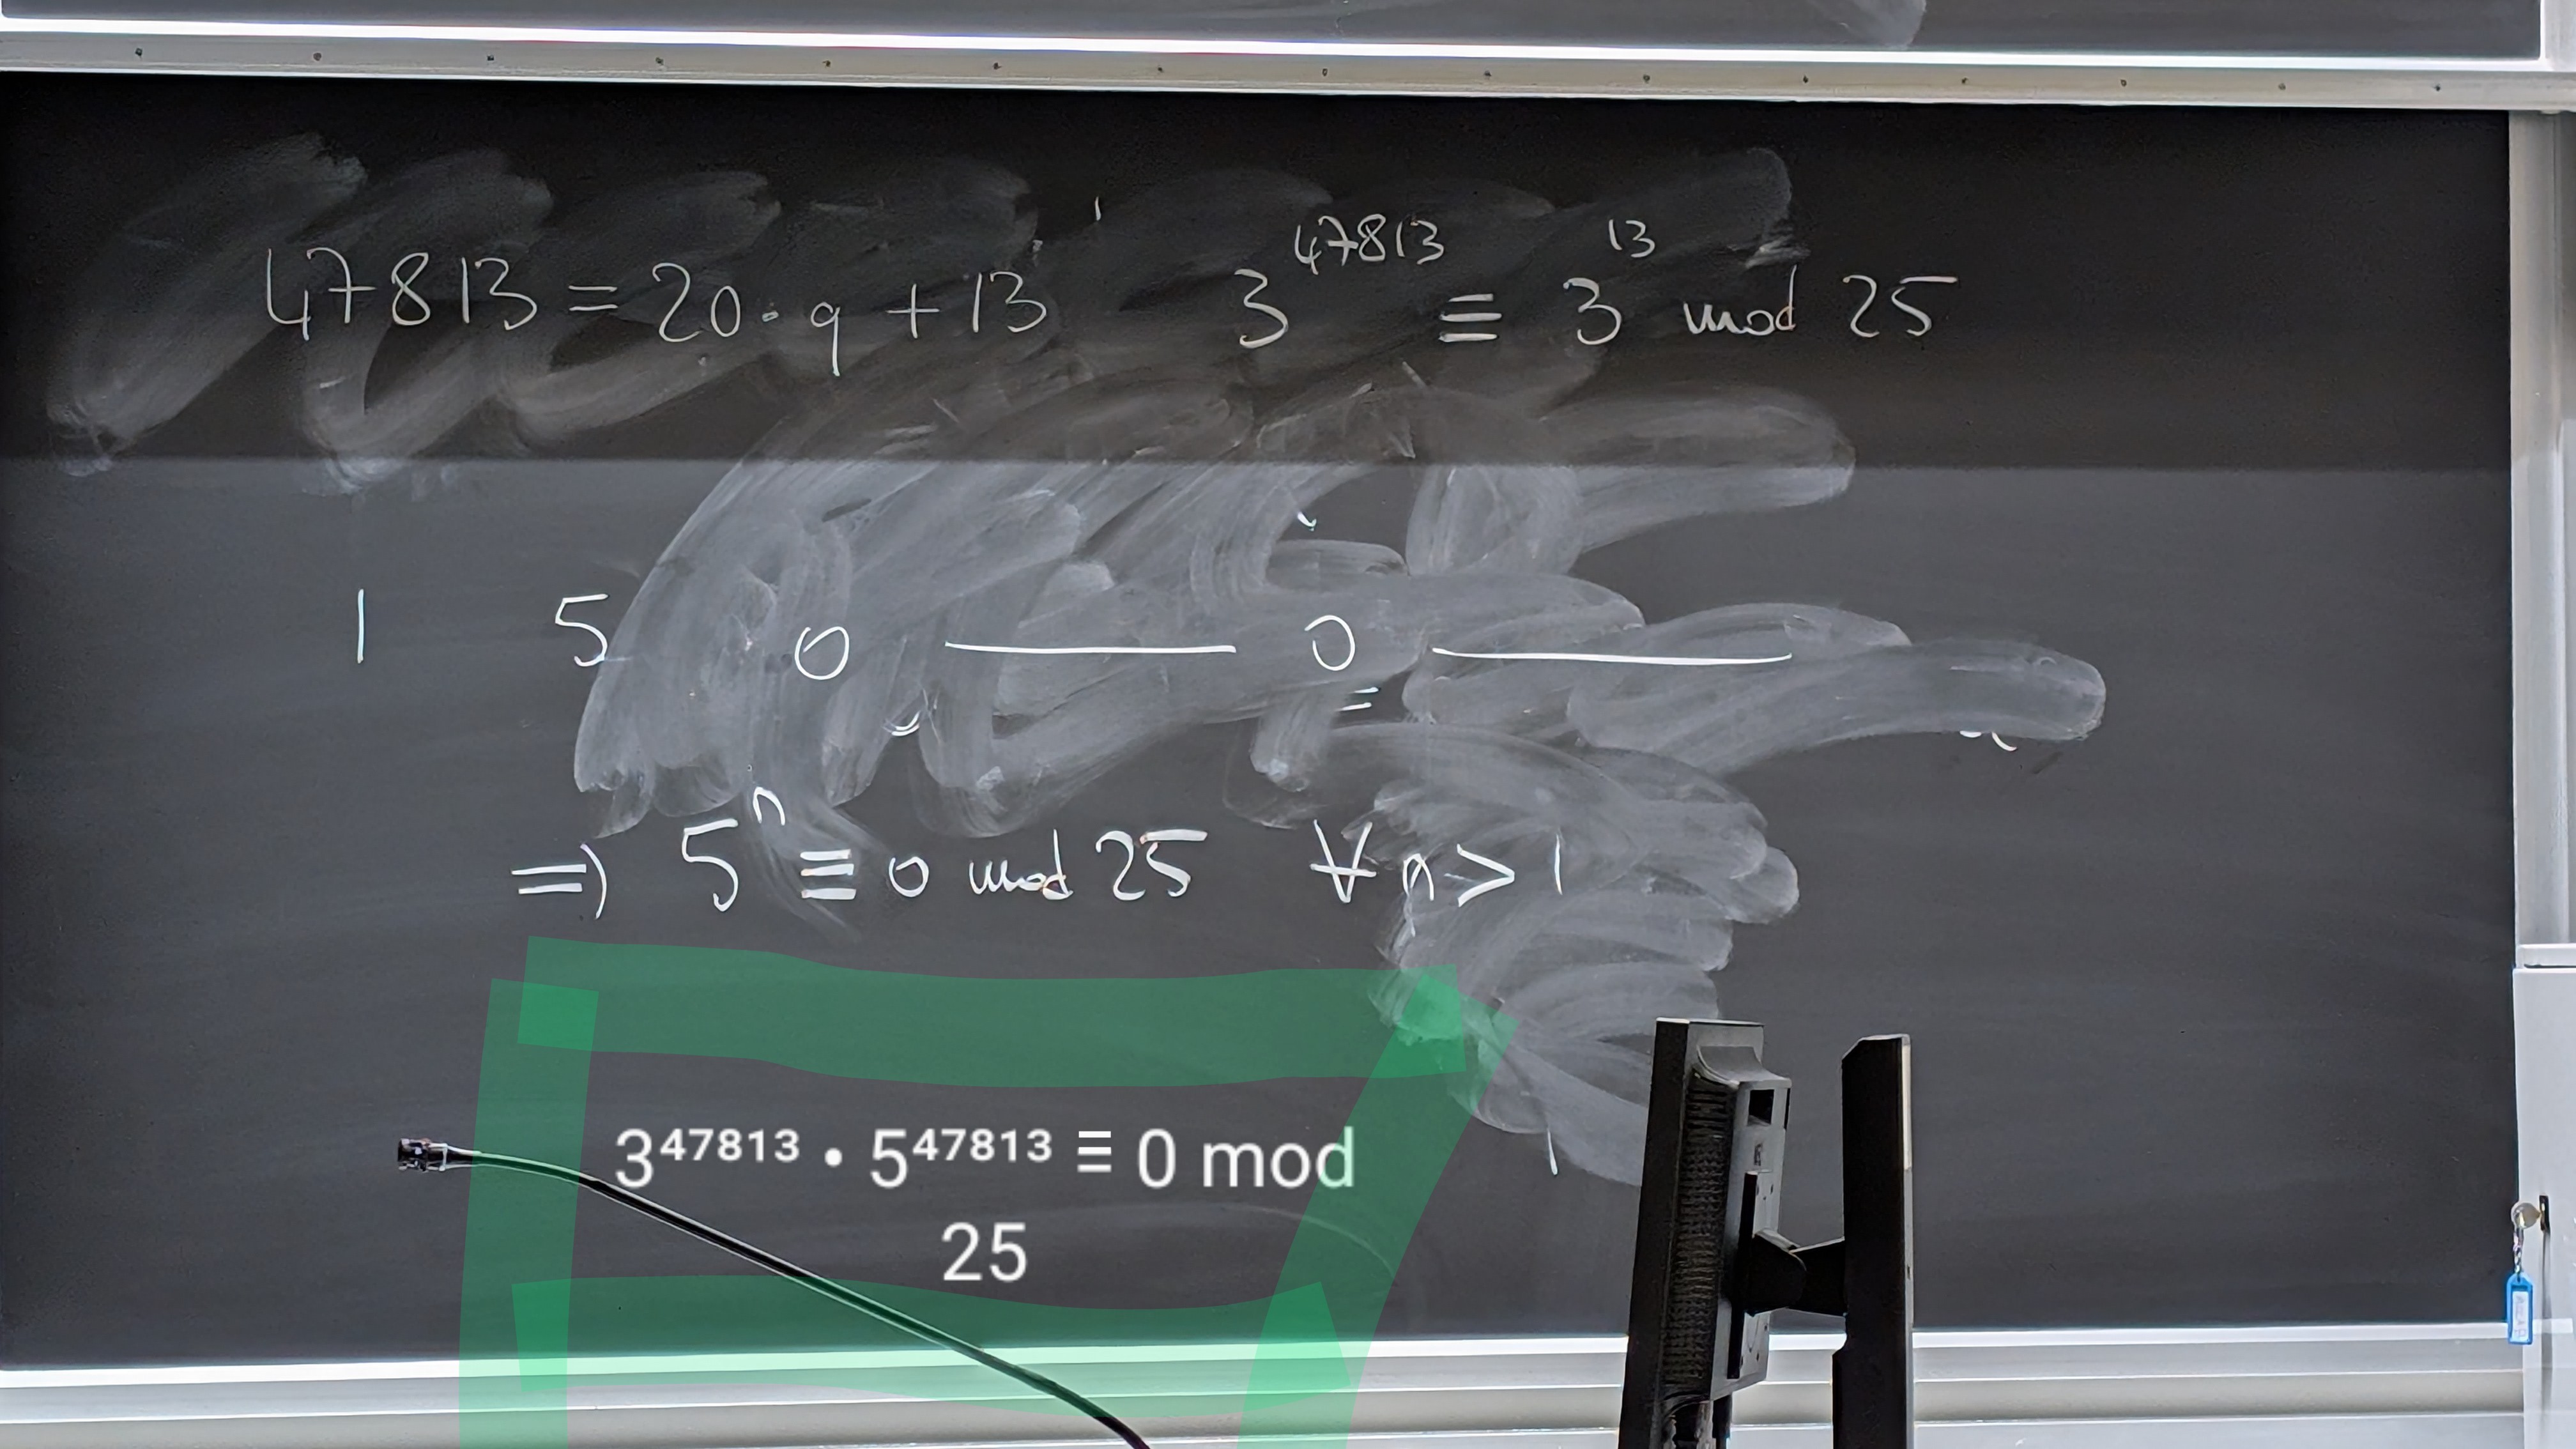 47813 = 20 · q + 13 3⁴⁷⁸¹³ ≡ 3¹³ mod 25
1 5 0 — 0 —
⇒ 5ⁿ ≡ 0 mod 25 ∀ n > 1
3⁴⁷⁸¹³ • 5⁴⁷⁸¹³ ≡ 0 mod
25